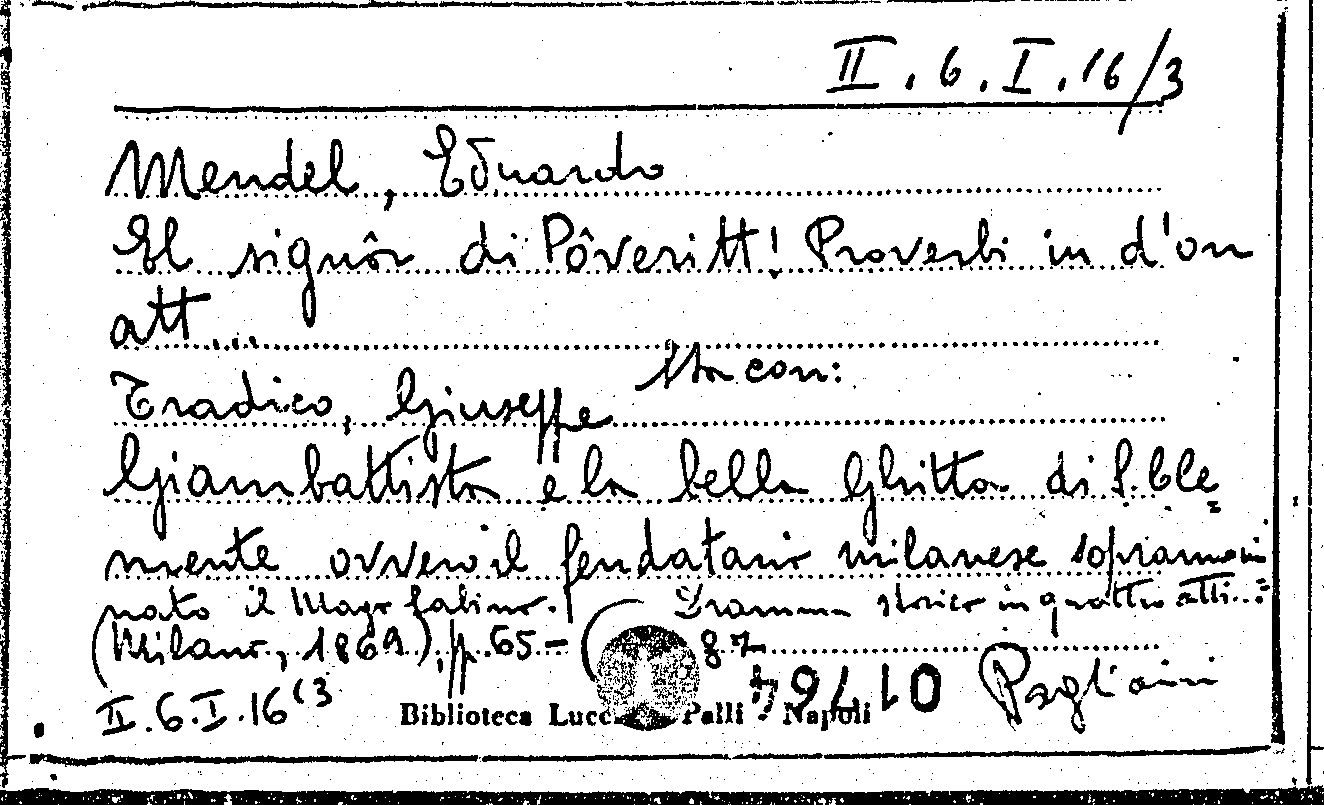 II.6.I.16/3
Mendel, Eduardo
El signôr di Pôveritt! Proverbi in d'on
att...
Sta con:
Tradico, Giuseppe
Giambattista e la bella Ghitta di S. Cle=
mente ovvero il feudatario milanese sopranomi=
nato il Mago Sabino. Dramma storico in quattro atti...
(Milano, 1869), pp. 65-87
II.6.I.16(3
Biblioteca Lucc Palli - Napoli
01764
Pagliaini